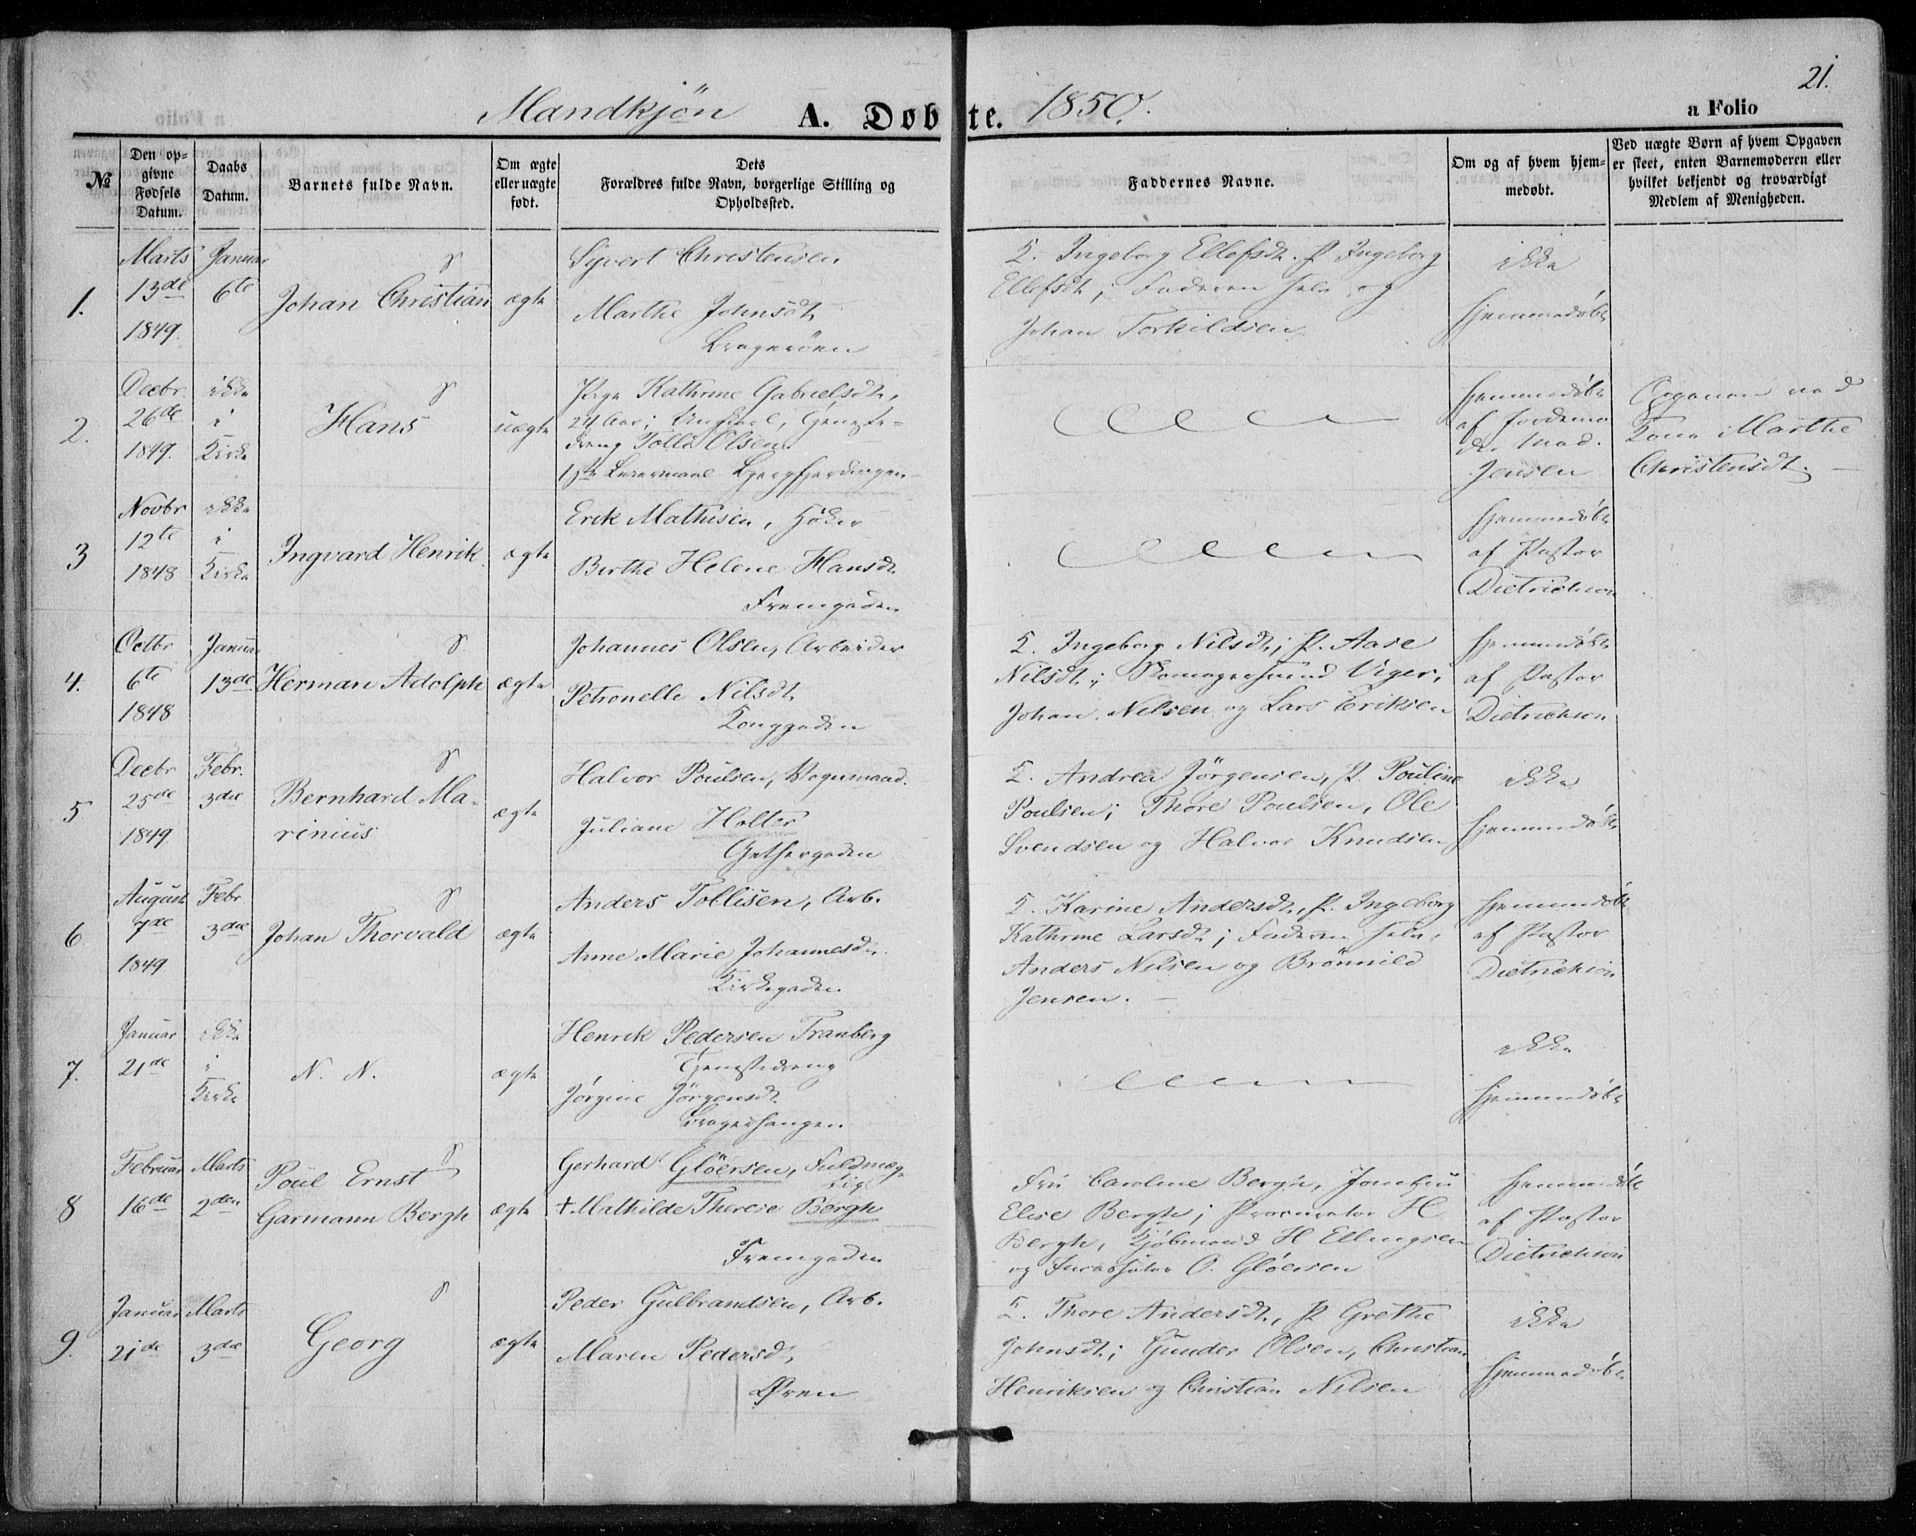 21.
Mandkjön A. Døbte. 1850. a Folio
№
Den opgivne Fødsels Datum.
Daabs Datum.
Barnets fulde Navn.
Om ægte eller uægte født.
Dets Forældres fulde Navn, borgerlige Stilling og Opholdssted.
Faddernes Navne.
Om og af hvem hjemmedøbt.
Ved uægte Børn af hvem Opgaven er skeet, enten Barnemoderen eller hvilket bekjendt og troværdigt Medlem af Menigheden.
1.
Marts
13de
1849.
Januar
6te
Johan Christian
ægte
Syvert Christensen
Marthe Johnsdt.
Bragerøen
K. Ingeborg Ellefsdt. P. Ingeborg
Ellefsdt; Faderen selv og
Johan Torkildsen
ikke
hjemmedøbt
2.
Decbr.
26de
1849.
ikke
i
Kirke
Hans
uægte
Pige Kathrine Gabrielsdt.,
24 Aar; Ungkarl, Tjeneste-
dreng Tolle Olsen
1ste Leiermaal Bjergfjerdingen
hjemmedøbt
af Jordemo
der Mad.
Jensen
Opgaven ved
Kone Marthe
Christensdt.
3
Novbr
12te
1848
ikke
i
Kirke
Ingvard Henrik
ægte
Erik Mathisen, Høker
Berthe Helene Hansdt.
Fremgaden
hjemmedøbt
af Pastor
Dietrichson
4.
Octbr
6te
1848
Januar
13de
Herman Adolph
ægte
Johannes Olsen, Arbeider
Petronelle Nilsdt.
Konggaden
K. Ingeborg Nilsdt; P. Aase
Nilsdt; Skomagersvend Viger,
Johan Nelsen og Lars Eriksen
hjemmedøbt
af Pastor
Dietrichson
5
Decbr
25de
1849
Febr.
3die
Bernhard Ma-
rinius
ægte
Halvor Poulsen, Vognmand.
Juliane Holter
Gethergaden
K. Andrea Jörgensen, P. Pouline
Poulsen; Thore Poulsen, Ole
Svendsen og Halvor Knudsen
ikke
hjemmedøbt
6
August
7de
1849
Febr
3die
Johan Thorvald
ægte
Anders Tollisen, Arb.
Anne Marie Johannesdt.
Kirkegaden
K. Karine Andersdt., P. Ingeborg
Kathrine Larsdt; Faderen selv,
Anders Nilsen og Brönnild
Jensen.
hjemmedøbt
af Pastor
Dietrichson
7.
Januar
21de
ikke
i
Kirke
N. N.
ægte
Henrik Pedersen Tranberg
Tjenestedreng
Jörgine Jörgensdt.
Brageshaugen
ikke
hjemmedøbt
8
Februar
16de
Marts
2den
Poul Ernst
Garmann Bergh
ægte
Gerhard Glöersen, Fuldmæg-
tig
+ Mathilde Therese Bergh
Fremgaden
Fru Caroline Bergh, Jomfru
Elise Bergh; Procurator H
Bergh, Kjöbmand H Ellingsen
og Incassator O. Glöersen
hjemmedøbt
af Pastor
Dietrichson
9.
Januar
21de
Marts
3die
Georg
ægte
Peder Gulbrandsen, Arb.
Maren Pedersdt,
Øren
K. Thore Andersdt., P Grethe
Johnsdt; Gunder Olsen, Christian
Henriksen og Christian Nilsen
ikke
hjemmedøbt